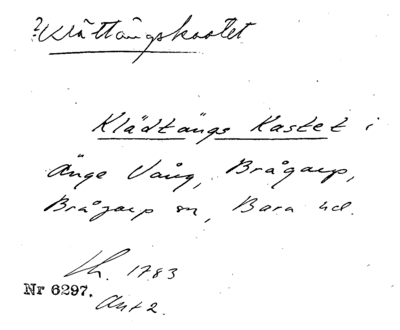 ? Klättängskastet
Klädtängs Kastet i
Änge Vång, Brågarp,
Brågarp sn, Bara hd.
Lh. 1783
Nr 6297.
Akt 2.